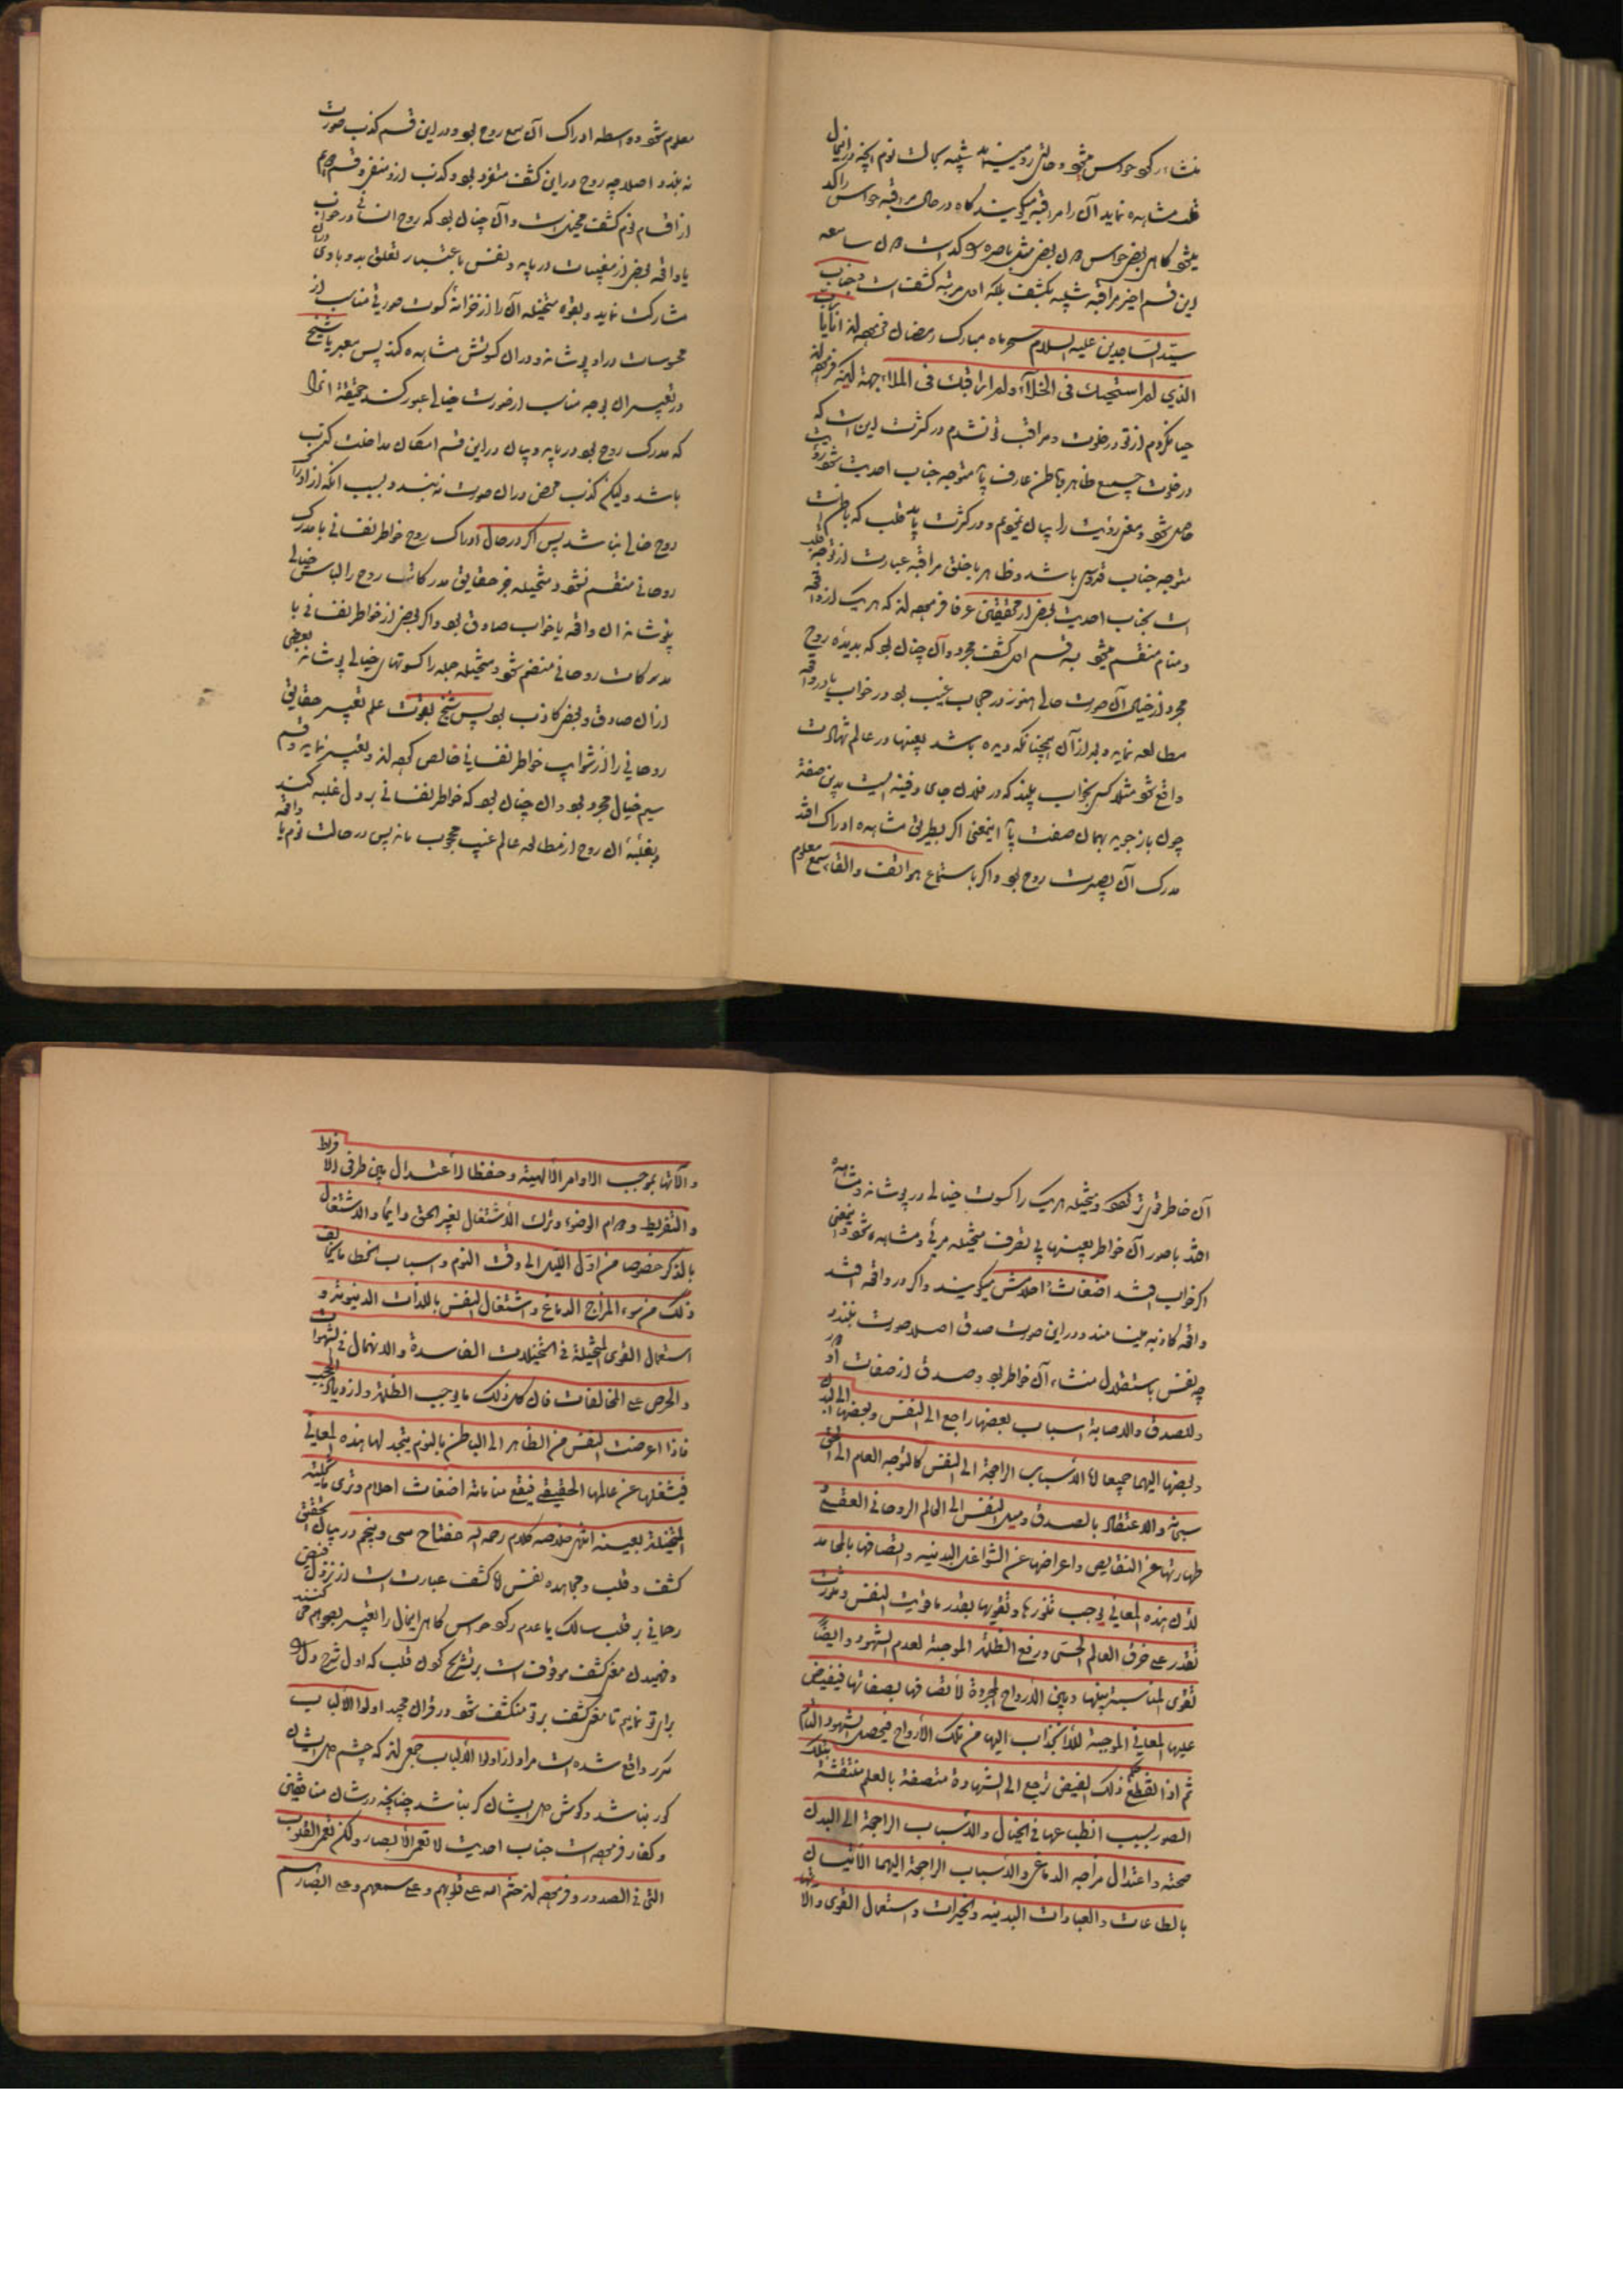 منشاء رکود حواس میشود و حالتی رو مینماید شبیه بحالت نوم آنچه در انحال
قلب مشاهده نماید آن را مراقبه میگویند گاه در حال مراقبه حواس راکد
میشود گاهی بعض حواس دون بعض مثل باصره راکد است دون سامعه
این قسم اخیر مراقبه شبیه بکشف بلکه اول مرتبه کشف است و جناب
سیّد السّاجدین علیه السلام سحر ماه مبارک رمضان فرموده‌اند انا یا رب
الذي لم استحیك فی الخلآء ولم اراقبك فی الملاء جهة اینکه فرموده‌اند
حیا نکردم از تو در خلوت و مراقب تو نشدم در کثرت این است که
در خلوت جمیع ظاهر و باطن عارف باید متوجه جناب احدیت شود رؤیت
حاصل شود و معنی رؤیت را بیان نمودیم و در کثرت باید قلب که باطن است
متوجه جناب قدوس باشد و ظاهر با خلق مراقبه عبارت از توجه قلب
است بجناب احدیت بعض از محققین عرفا فرموده‌اند که هر یک از واقعه
و منام منقسم میشود بسه قسم اول کشف مجرد و آن چنان بود که بدیده روح
مجرد از خیال آن صورت حالی هنوز در حجاب غیب بود در خواب یا در واقعه
مطالعه نماید و بعد از آن همچنانکه دیده باشد بعینها در عالم شهادت
واقع شود مثلا کسی بخواب بیند که در فلان جای دفینه ایست بدین صفت
چون باز جوید بهمان صفت یابد اینمعنی اگر بطریق مشاهده ادراک افتد
مدرک آن بصیرت روح بود و اگر باستماع هواتف و القاء سمع معلوم
معلوم شود واسطه ادراک آن سمع روح بود و در این قسم کذب صورت
نبندد اصلا چه روح در این کشف متفرد بود و کذب ازو منفی و قسم دوم
از اقسام نوم کشف مخیل است و آن چنان بود که روح انسانی در خواب
یا واقعه بعض از مغیبات دریابد و نفس باعتبار تعلق بدو با وی در آن
مشارکت نماید و بقوه متخیله آن را از خزانهٔ کسوت صورتی مناسب از
محسوسات در او پوشانه و در آن کسوتش مشاهده کند پس معبر یا شیخ
در تعبیر آن بوجه مناسب از صورت خیالی عبور کند حقیقة آنحال
که مدرک روح بود دریابد و بیان در این قسم امکان مداخلت کذب
باشد ولیکن کذب محض در آن صورت نبندد و بسبب آنکه از ادراک
روح خالی نباشد پس اگر در حال ادراک روح خواطر نفسانی با مدرک
روحانی منقسم نشود و متخیله جز حقایق مدرکات روح را لباس خیالی
پوشانه آن واقعه یا خواب صادق بود و اگر بعض از خواطر نفسانی با
مدرکات روحانی منضم شود و متخیله جمله را کسوتهای خیالی پوشانه بعضی
از آن صادق و بعض کاذب بود پس شیخ بقوت علم تعبیر حقایق
روحانی را از شوایب خواطر نفسانی خالص کرده و تعبیر نماید و قسم
سیم خیال مجرد بود و آن چنان بود که خواطر نفسانی بر دل غلبه کند
و بغلبهٔ آن روح از مطالعه عالم غیب محجوب ماند پس در حالت نوم یا واقعه
آن خاطر قوی‌تر شود و متخیله هر یک را کسوت خیالی در پوشانه و مشاهده
افتد یا صور آن خواطر بعینها بی تصرف متخیله مرئی و مشاهده شود و اینمعنی
اگر خواب افتد اضغاث احلامش میگویند و اگر در واقعه افتد
واقعه کاذبه مینامند و در این صورت صدق اصلا صورت نبندد
چه نفس باستقلال منشاء آن خواطر بود و صدق از صفات او دور
وللصدق والاصابة اسباب بعضها راجع الی النفس وبعضها الی البدن
وبعضها الیهما جمیعا امّا الاسباب الراجعة الی النفس کالتوجه العام الی الحق
سبحانه والاعتقاد بالصدق ومیل النفس الی العالم الروحانی العقلی
طهارتها عن النقایص واعراضها عن الشواغل البدنیه واتصافها بالمحامد
لان هذه المعانی یوجب تنورها وتقویها بقدر ما قویت النفس وتنورت
تقدر علی خرق العالم الحسی ورفع الظلمة الموجبة لعدم الشهود وایضاً
تقوی المناسبة بینها وبین الارواح المجردة لاتصافها بصفاتها فیفیض
علیها المعانی الموجبة للانجذاب الیها من تلک الارواح فیحصل الشهود التام
ثم اذا انقطع حکم ذلک الفیض ترجع الی الشهادة متصفة بالعلم منتقشة بتلک
الصور بسبب انطباعها فی الخیال والاسباب الراجعة الی البدن
صحته واعتدال مزاجه الدماغی والاسباب الراجعة الیهما الاتیان
بالطاعات والعبادات البدنیه والخیرات واستعمال القوی والا
والآتها بموجب الاوامر الالهیة وحفظا لاعتدال بین طرفی الافراط
والتفریط ودوام الوضوء وترک الاشتغال بغیر الحق دایما والاشتغال
بالذکر خصوصا من اول اللیل الی وقت النوم واسباب الخطا ما یخالف
ذلک من سوء المزاج الدماغ واشتغال النفس باللذات الدنیویة و
استعمال القوی المتخیلة فی التخیلات الفاسدة والانهماک فی الشهوات
والحرص علی المخالفات فان کل ذلک مما یوجب الظلمة وازدیاد الحجب
فاذا اعرضت النفس من الظاهر الی الباطن بالنوم یتجسد لها هذه المعانی
فیشغلها عن عالمها الحقیقی فیقع منامانه اضغاث احلام وتری ما تخیلته
المتخیلة بعینه انتهی خلاصه کلام رحمه الله مفتاح سی و پنجم در بیان تحقیق
کشف و قلب و مجاهده نفس امّا کشف عبارت است از نزول فیض
رحمانی بر قلب سالک با عدم رکود حواس گاهی ایحال را تعبیر بصحو هم میکنند
و فهمیدن معنی کشف موقوفست بر تشریح کردن قلب که اول شرح دل
برای تو نمایم تا معنی کشف بر تو منکشف شود در قرآن مجید اولوا الالباب
مکرر واقع شده است مراد از اولوا الالباب جمعی‌اند که چشم دل ایشان
کور نباشد و گوش دل ایشان کر نباشد چنانچه در شان منافقین
و کفار فرموده است جناب احدیت لا تعمی الابصار ولکن تعمی القلوب
التی فی الصدور و فرموده‌اند ختم الله علی قلوبهم وعلی سمعهم وعلی ابصارهم